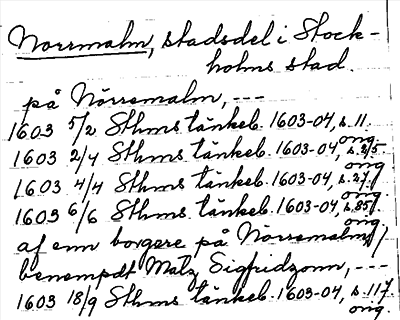 Norrmalm, stadsdel i Stock-
holms stad.
på Nörremalm, ---
1603 5/2 Sthms tänkeb. 1603-04, s. 11.
orig.
1603 2/4 Sthms tänkeb. 1603-04, s. 25.
orig.
1603 4/4 Sthms tänkeb. 1603-04, s. 27.
orig.
1603 6/6 Sthms tänkeb. 1603-04, s. 85.
orig.
af enn borgere på Nörremalm,
benempdt Matz Sigfridzonn, ---
1603 18/9 Sthms tänkeb. 1603-04, s. 117.
orig.